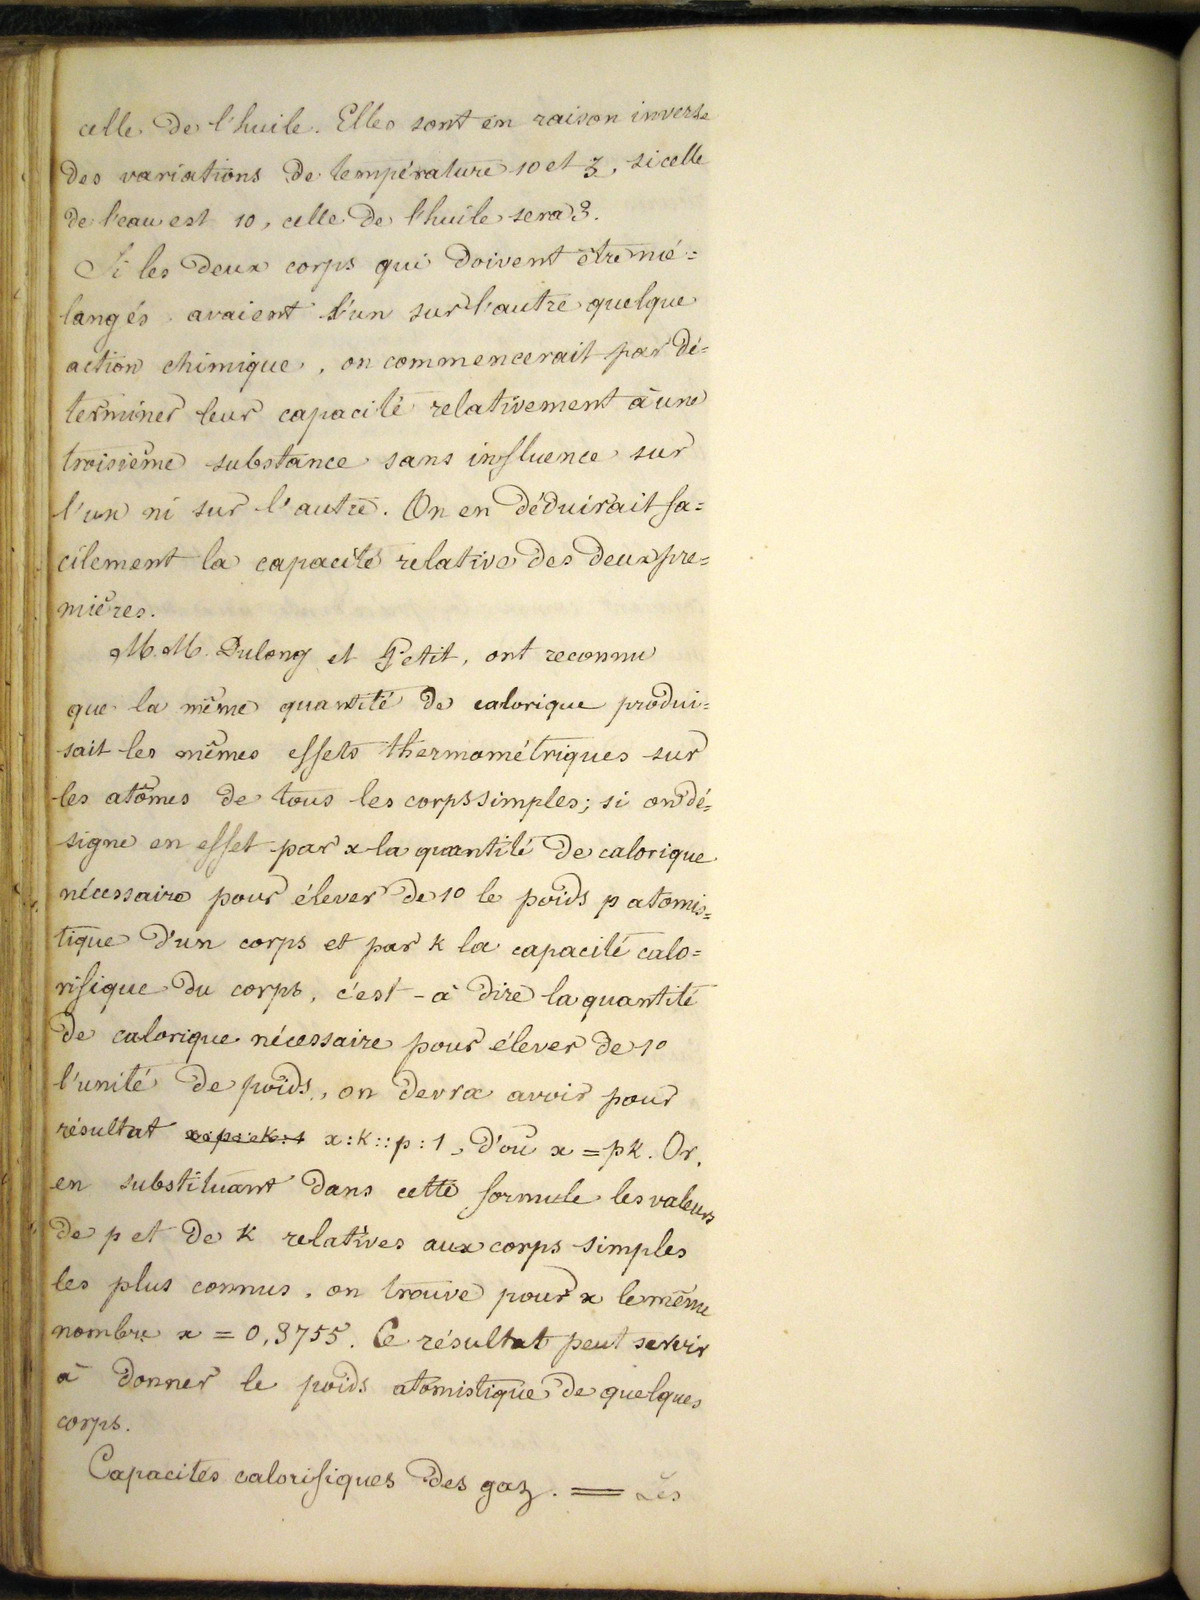 celle de l'huile. Elles sont en raison inverse
des variations de température 10 et 3, si celle
de l'eau est 10, celle de l'huile sera 3.
Si les deux corps qui doivent être mé=
langés avaient l'un sur l'autre quelque
action chimique, on commencerait par dé=
terminer leur capacité relativement à une
troisième substance sans influence sur
l'un ni sur l'autre. On en déduirait fa=
cilement la capacité relative des deux pre=
mières.
M.M. Dulong et Petit, ont reconnu
que la même quantité de calorique produi=
sait les mêmes effets thermométriques sur
les atômes de tous les corps simples; si on dé=
signe en effet par x la quantité de calorique
nécessaire pour élever de 1° le poids p atomis=
tique d'un corps et par k la capacité calo=
rifique du corps, c'est-à dire la quantité
de calorique nécessaire pour élever de 1°
l'unité de poids, on devra avoir pour
résultat x:k::p:1, d'où x = pk. Or,
en substituant dans cette formule les valeurs
de p et de k relatives aux corps simples
les plus connus, on trouve pour x le même
nombre x = 0,3755. Ce résultat peut servir
à donner le poids atomistique de quelques
corps.
Capacités calorifiques des gaz. = Les